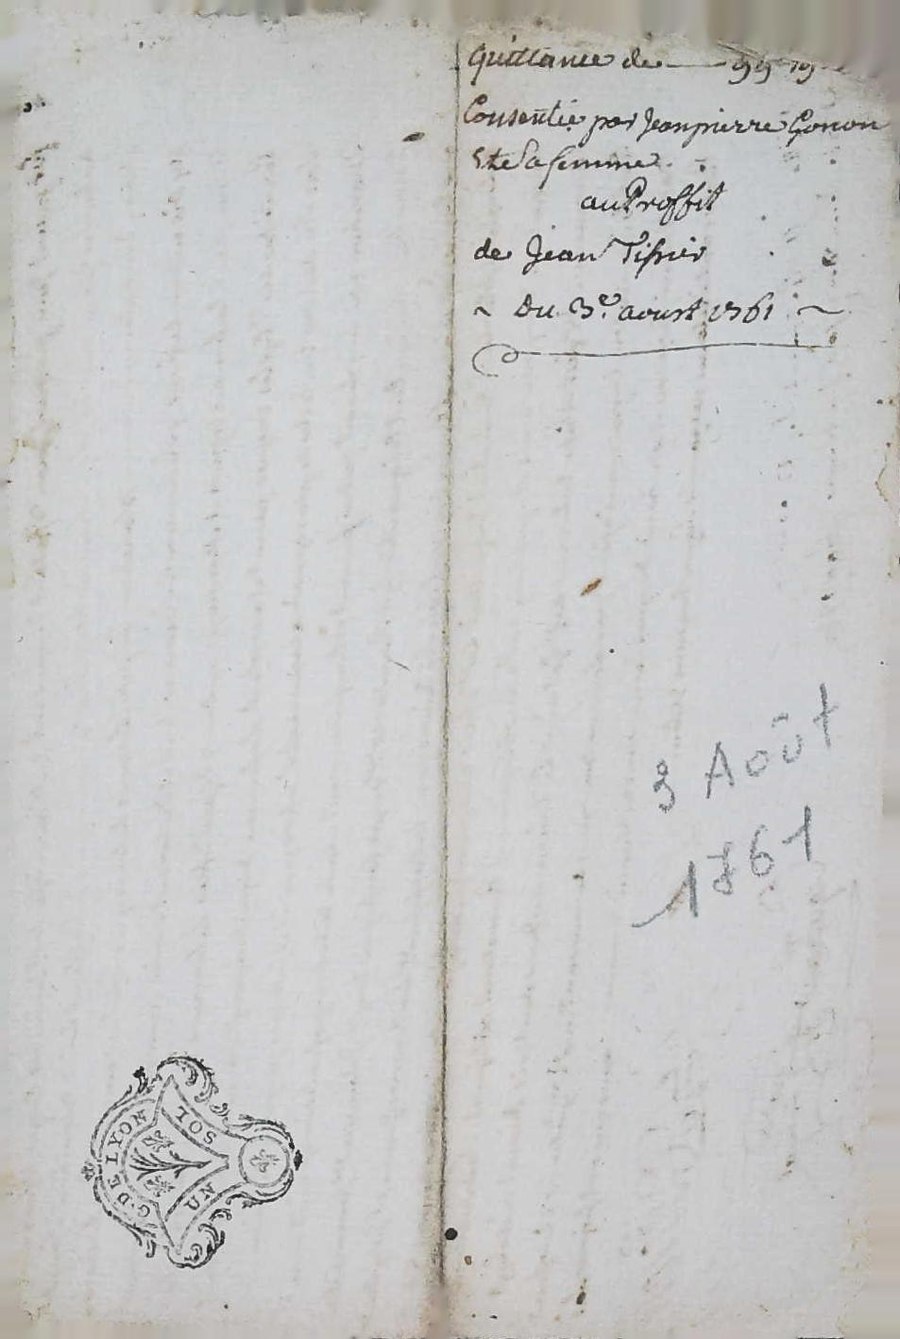 Quittance de
Consentie par Jeanpierre Gonon
Et sa femme
au Proffit
de Jean Tissier
~ Du 3e. aoust 1761 ~
3 Août
1761
G. DE LYON
UN SOL